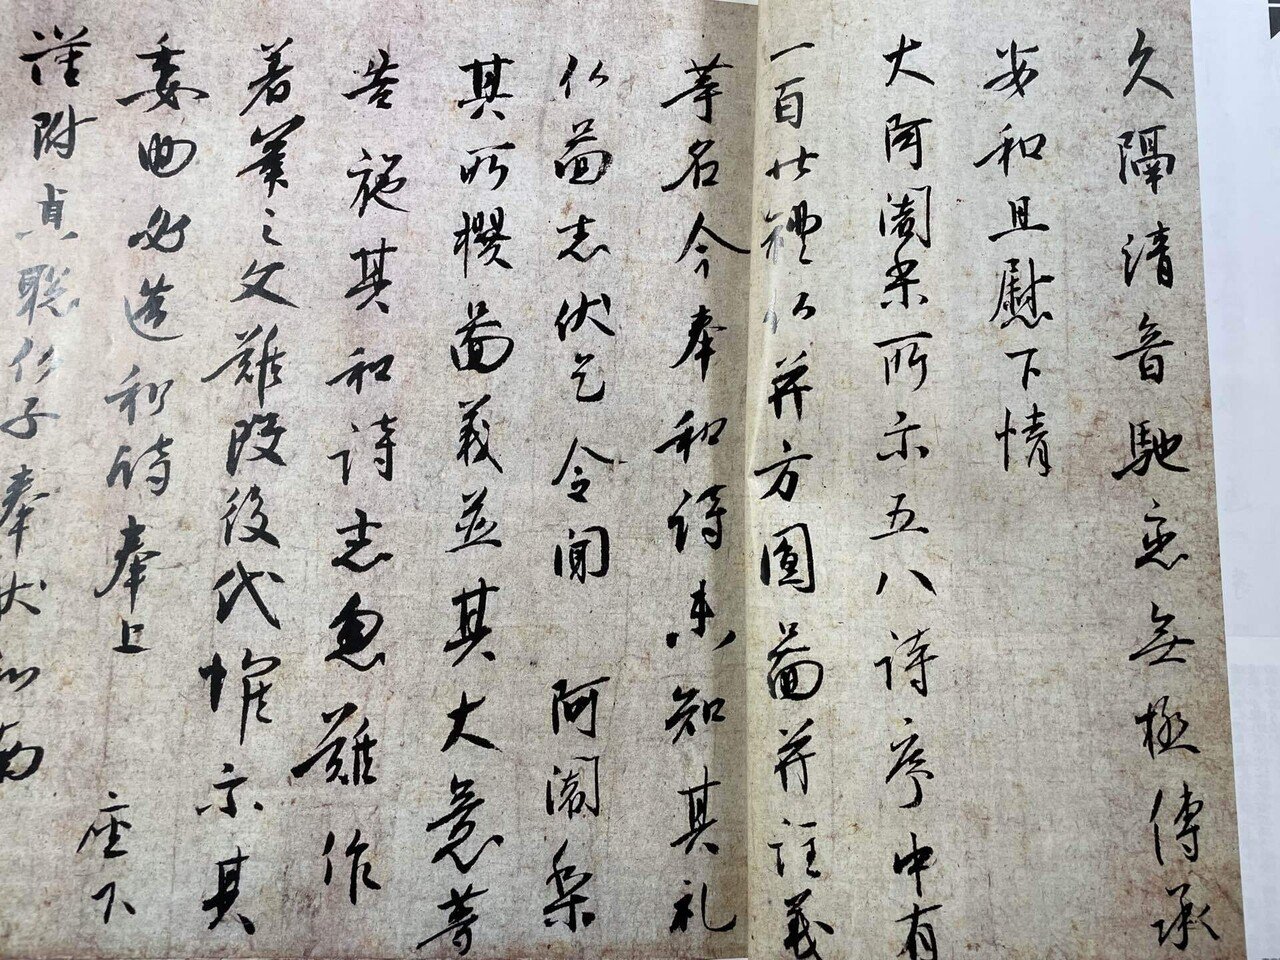 久隔清音馳恋無極傳承
安和且慰下情
大阿闍梨所示五八詩序中有
一百廿禮仏并方圓圖并註義
等名今奉和詩未知其礼
仏圖者伏乞令聞 阿闍梨
其所撰圖義並其大意等
告施其和詩者忽難作
著筆之文難改後代惟示其
委曲必造和詩奉上 座下
謹附貞聡仏子奉状和南